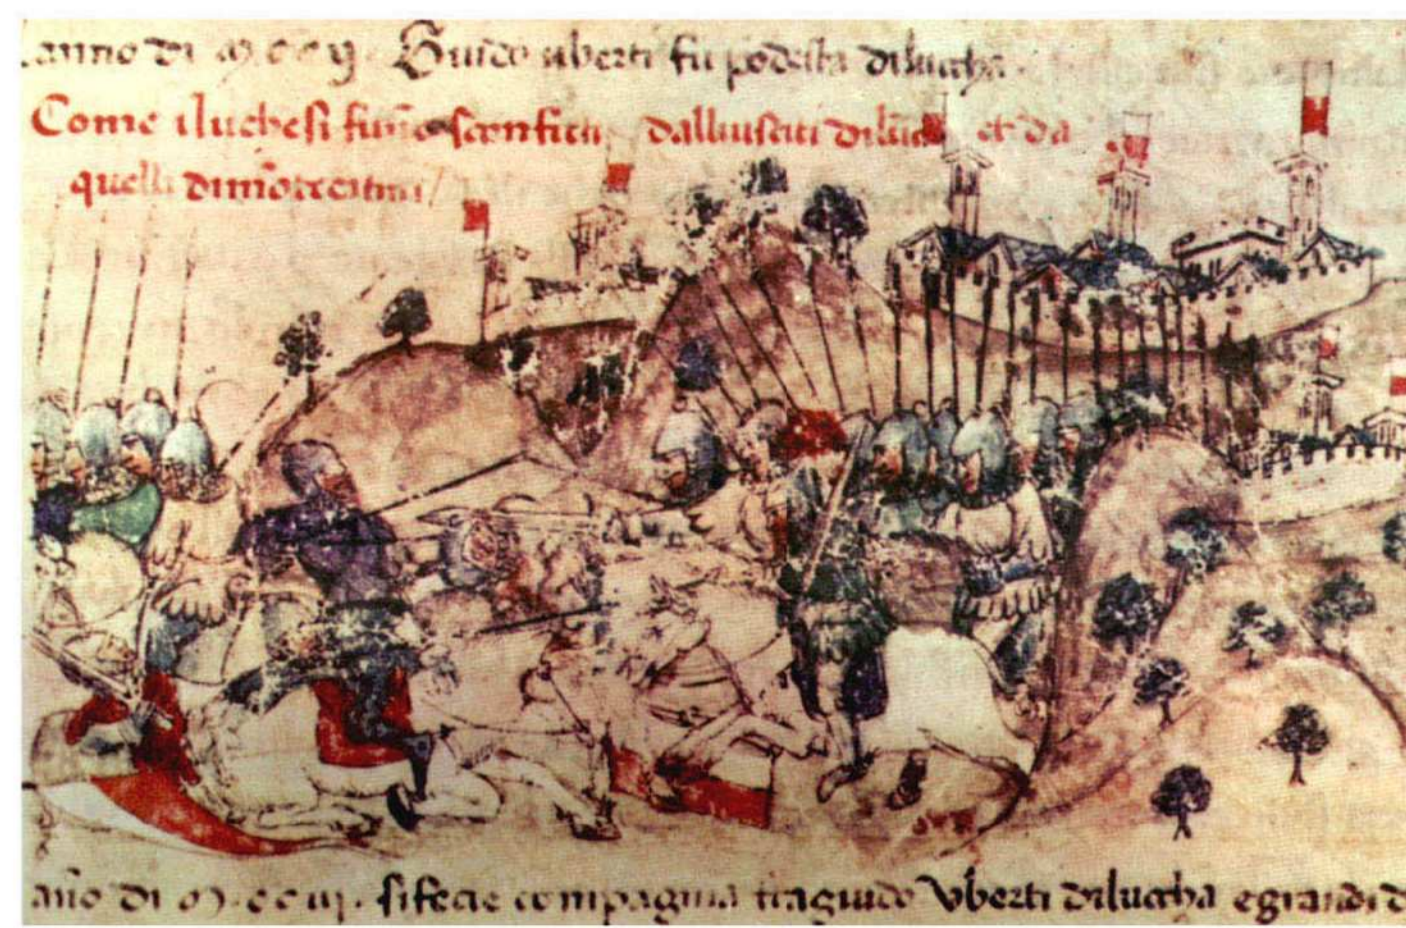 anno di M.CC.IJ. Guido uberti fu podesta dilucha.
Come iluchesi furo sconficti dalliusciti diluca et da
quelli dimo
año di M.CC.IIJ. sifecie compagnia traguido Vberti dilucha egrandi d